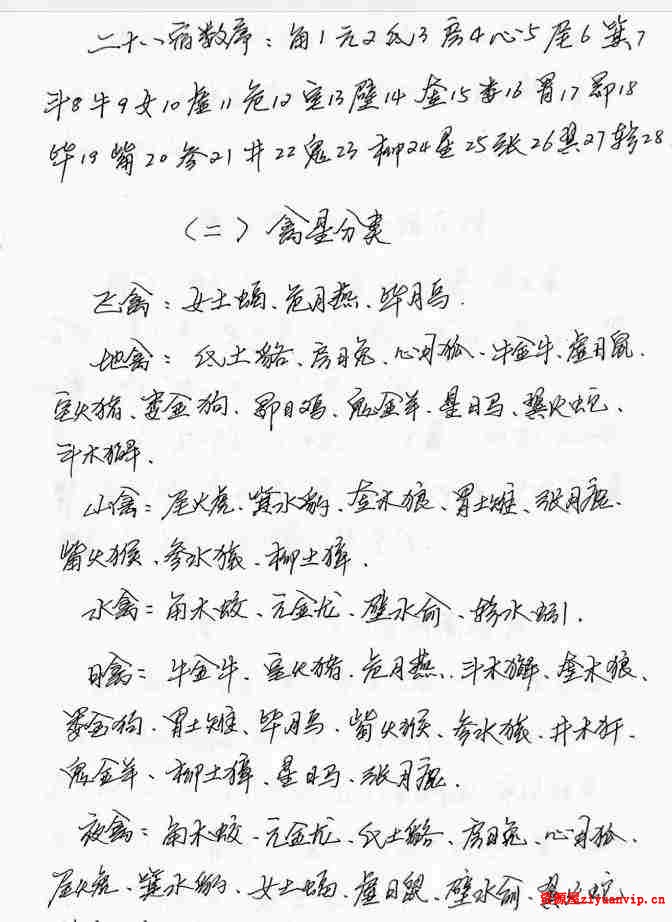 二十八宿数序：角1亢2氐3房4心5尾6箕7
斗8牛9女10虚11危12室13壁14奎15娄16胃17昴18
毕19觜20参21井22鬼23柳24星25张26翼27轸28
（二）禽星分类
飞禽：女土蝠、危月燕、毕月乌.
地禽：氐土貉、房日兔、心月狐、牛金牛、虚日鼠.
室火猪、娄金狗、昴日鸡、鬼金羊、星日马、翼火蛇、
斗木獬.
山禽：尾火虎、箕水豹、奎木狼、胃土雉、张月鹿.
觜火猴、参水猿、柳土獐.
水禽：角木蛟、亢金龙、壁水俞、轸水蚓.
日禽：牛金牛、室火猪、危月燕、斗木獬、奎木狼、
娄金狗、胃土雉、毕月乌、觜火猴、参水猿、井木犴、
鬼金羊、柳土獐、星日马、张月鹿.
夜禽：角木蛟、亢金龙、氐土貉、房日兔、心月狐.
尾火虎、箕水豹、女土蝠、虚日鼠、壁水俞、翼火蛇
资源屋ziyuanvip.cn